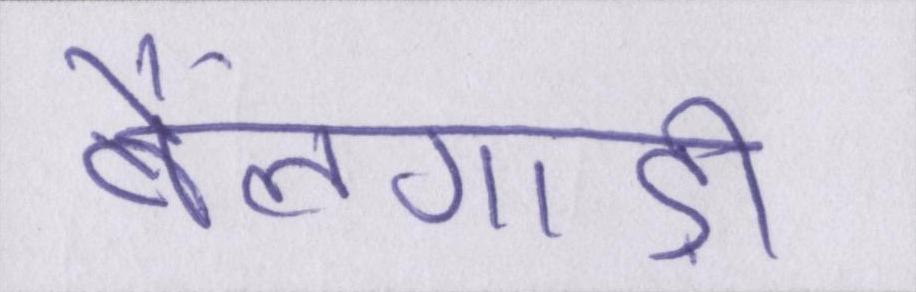 बैंलगाड़ी